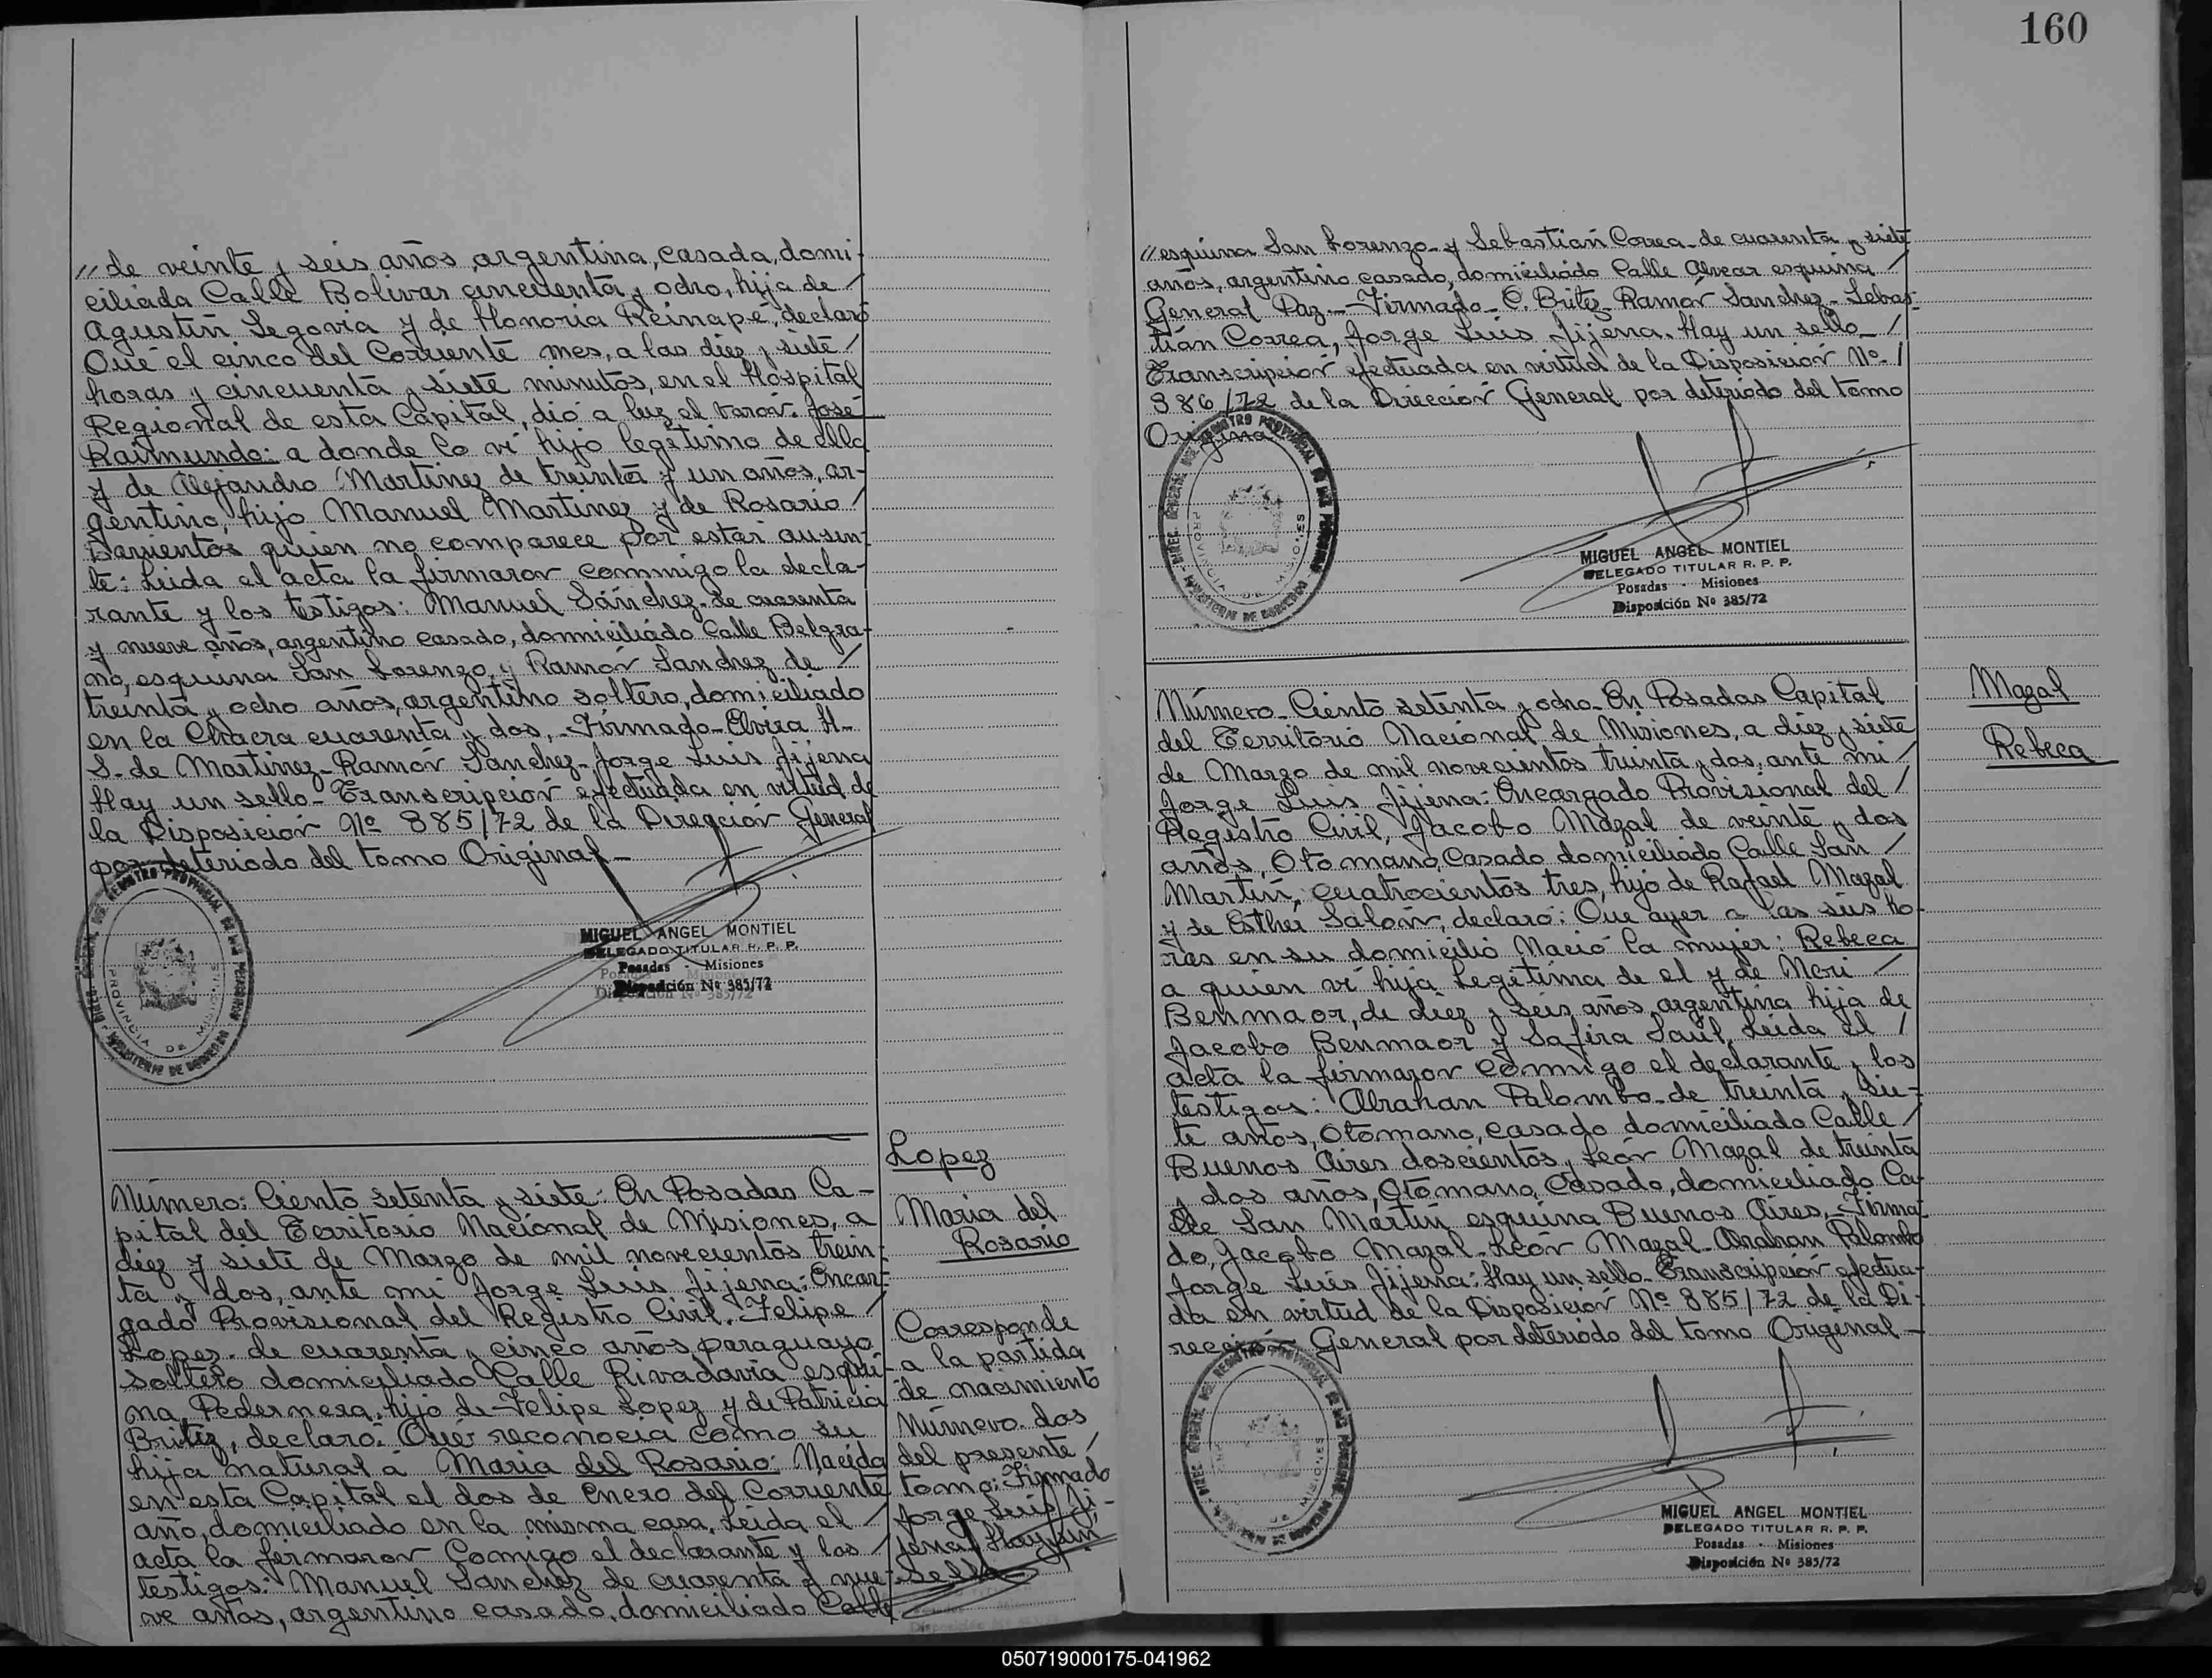 // de veinte y seis años, argentina, casada, domi-
ciliada Calle Bolivar cincuenta y ocho, hija de /
Agustín Segovia y de Honoria Reinapé, declaró
Que el cinco del Corriente mes, a las diez y siete /
horas y cincuenta y siete minutos, en el Hospital
Regional de esta Capital, dió a luz el varón: José
Raimundo: a donde lo vi hijo legítimo de ella
y de Alejandro Martinez de treinta y un años, ar-
gentino, hijo Manuel Martinez y de Rosario /
Barrientos quien no comparece por estar ausen-
te: Leida el acta la firmaron conmigo la decla-
rante y los testigos: Manuel Sánchez de cuarenta
y nueve años, argentino casado, domiciliado Calle Belgra-
no, esquina San Lorenzo, y Ramón Sanchez de /
treinta y ocho años, argentino soltero, domiciliado
en la Chacra cuarenta y dos,- Firmado- Elvira H-
S- de Martinez- Ramón Sanchez- Jorge Luis Jijena
Hay un sello- Transcripción efectuada en virtud de
la Disposición Nº 885/72 de la Dirección General
por deteriodo del tomo Original-
MIGUEL ANGEL MONTIEL
DELEGADO TITULAR R. P. P.
Posadas - Misiones
Disposición Nº 385/72
Número: Ciento setenta y siete: En Posadas Ca-
pital del Territorio Nacional de Misiones, a
diez y siete de Marzo de mil novecientos trein-
ta y dos, ante mi Jorge Luis Jijena: Encar-
gado Provisional del Registro Civil. Felipe /
Lopez. de cuarenta y cinco años, paraguayo,
soltero domiciliado Calle Rivadavia esqui-
na Pedernera, hijo de Felipe Lopez y de Patricia
Britez, declaró: Que reconocia como su
hija natural a Maria del Rosario: Nacida
en esta Capital el dos de Enero del Corriente
año, domiciliado en la misma casa. Leida el /
acta la firmaron Comigo el declarante y los /
testigos: Manuel Sanchez de cuarenta y nue-
ve años, argentino casado, domiciliado Calle
Lopez
Maria del
Rosario
Corresponde
a la partida
de nacimiento
Número dos
del presente /
tomo: Firmado
Jorge Luis Ji-
jena: Hay un
sello
160
// esquina San Lorenzo- y Sebastián Correa- de cuarenta y siete
años, argentino casado, domiciliado Calle Alvear esquina /
General Paz.- Firmado- C. Britez- Ramón Sanchez- Sebas-
tián Correa, Jorge Luis Jijena. Hay un sello- /
Transcripción efectuada en virtud de la Disposición Nº- /
386/72 de la Dirección General por deteriodo del tomo
Original
MIGUEL ANGEL MONTIEL
DELEGADO TITULAR R. P. P.
Posadas - Misiones
Disposición Nº 385/72
Número- Ciento setenta y ocho- En Posadas Capital
del Territorio Nacional de Misiones, a diez y siete
de Marzo de mil novecientos treinta y dos, ante mi /
Jorge Luis Jijena: Encargado Provisional del /
Registro Civil, Jacobo Mazal de veinte y dos
años, Otomano, Casado domiciliado Calle San /
Martin, cuatrocientos tres, hijo de Rafael Mazal
y de Esther Salón, declaró: Que ayer a las seis ho-
ras en su domicilio Nació la mujer: Rebeca
a quien vi hija Legítima de el y de Meri /
Benmaor, de diez y seis años, argentina hija de
Jacobo Benmaor y Safira Saúl, Leida el /
acta la firmaron Comigo el declarante y los
testigos: Abrahan Palombo- de treinta y sie-
te años, Otomano, casado domiciliado Calle /
Buenos Aires doscientos, León Mazal de treinta
y dos años, Otomano, Casado, domiciliado Ca-
lle San Martín esquina Buenos Aires,- Firma-
do, Jacobo Mazal- León Mazal- Abrahan Palombo
Jorge Luis Jijena: Hay un sello- Transcripción efectua-
da en virtud de la Disposición Nº 885/72 de la Di-
rección General por deteriodo del tomo Original-
MIGUEL ANGEL MONTIEL
DELEGADO TITULAR R. P. P.
Posadas - Misiones
Disposición Nº 385/72
Mazal
Rebeca
050719000175-041962